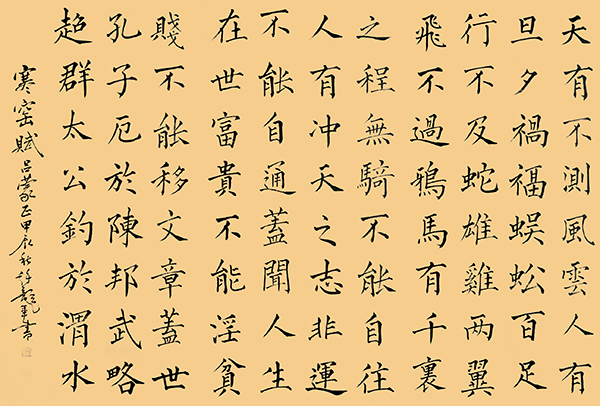 天有不測風雲人有
旦夕禍福蜈蚣百足
行不及蛇雄雞两翼
飛不過鴉馬有千裏
之程無騎不能自往
人有冲天之志非運
不能自通蓋聞人生
在世富貴不能淫貧
賤不能移文章蓋世
孔子厄於陳邦武略
超群太公釣於渭水
寒窑賦吕蒙正甲辰秋書